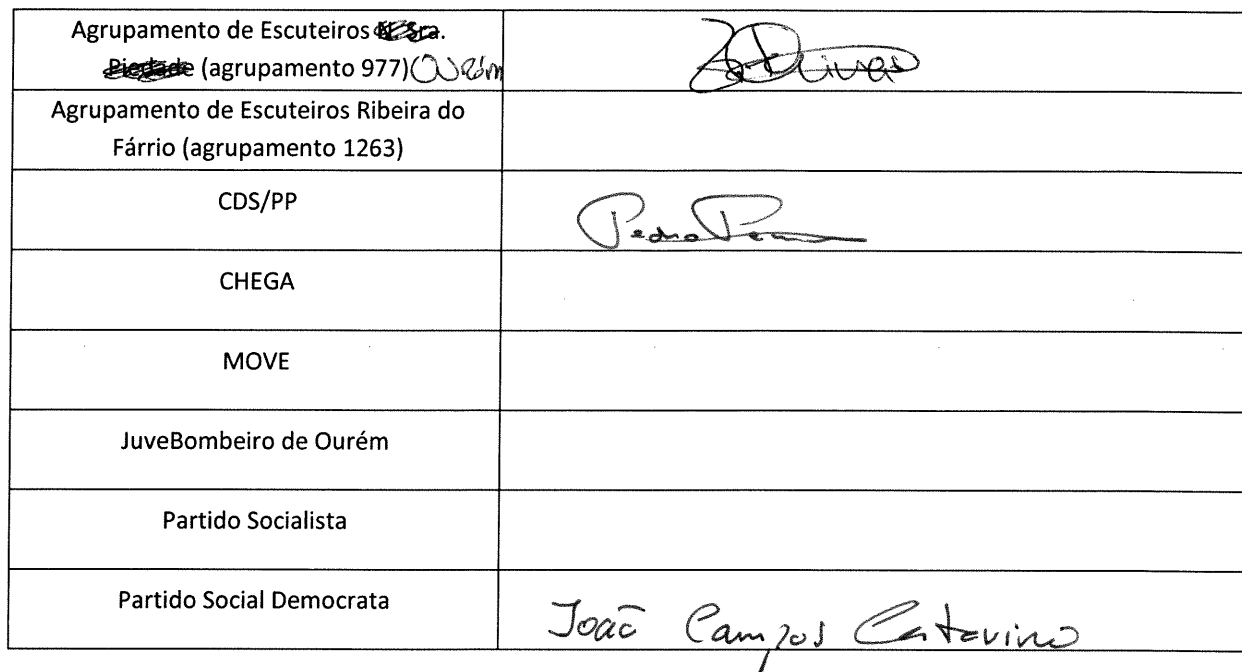 Agrupamento de Escuteiros N. Sra.
Piedade (agrupamento 977) Ourém
Agrupamento de Escuteiros Ribeira do
Fárrio (agrupamento 1263)
CDS/PP
Pedro
CHEGA
MOVE
JuveBombeiro de Ourém
Partido Socialista
Partido Social Democrata
João Campos Catarino